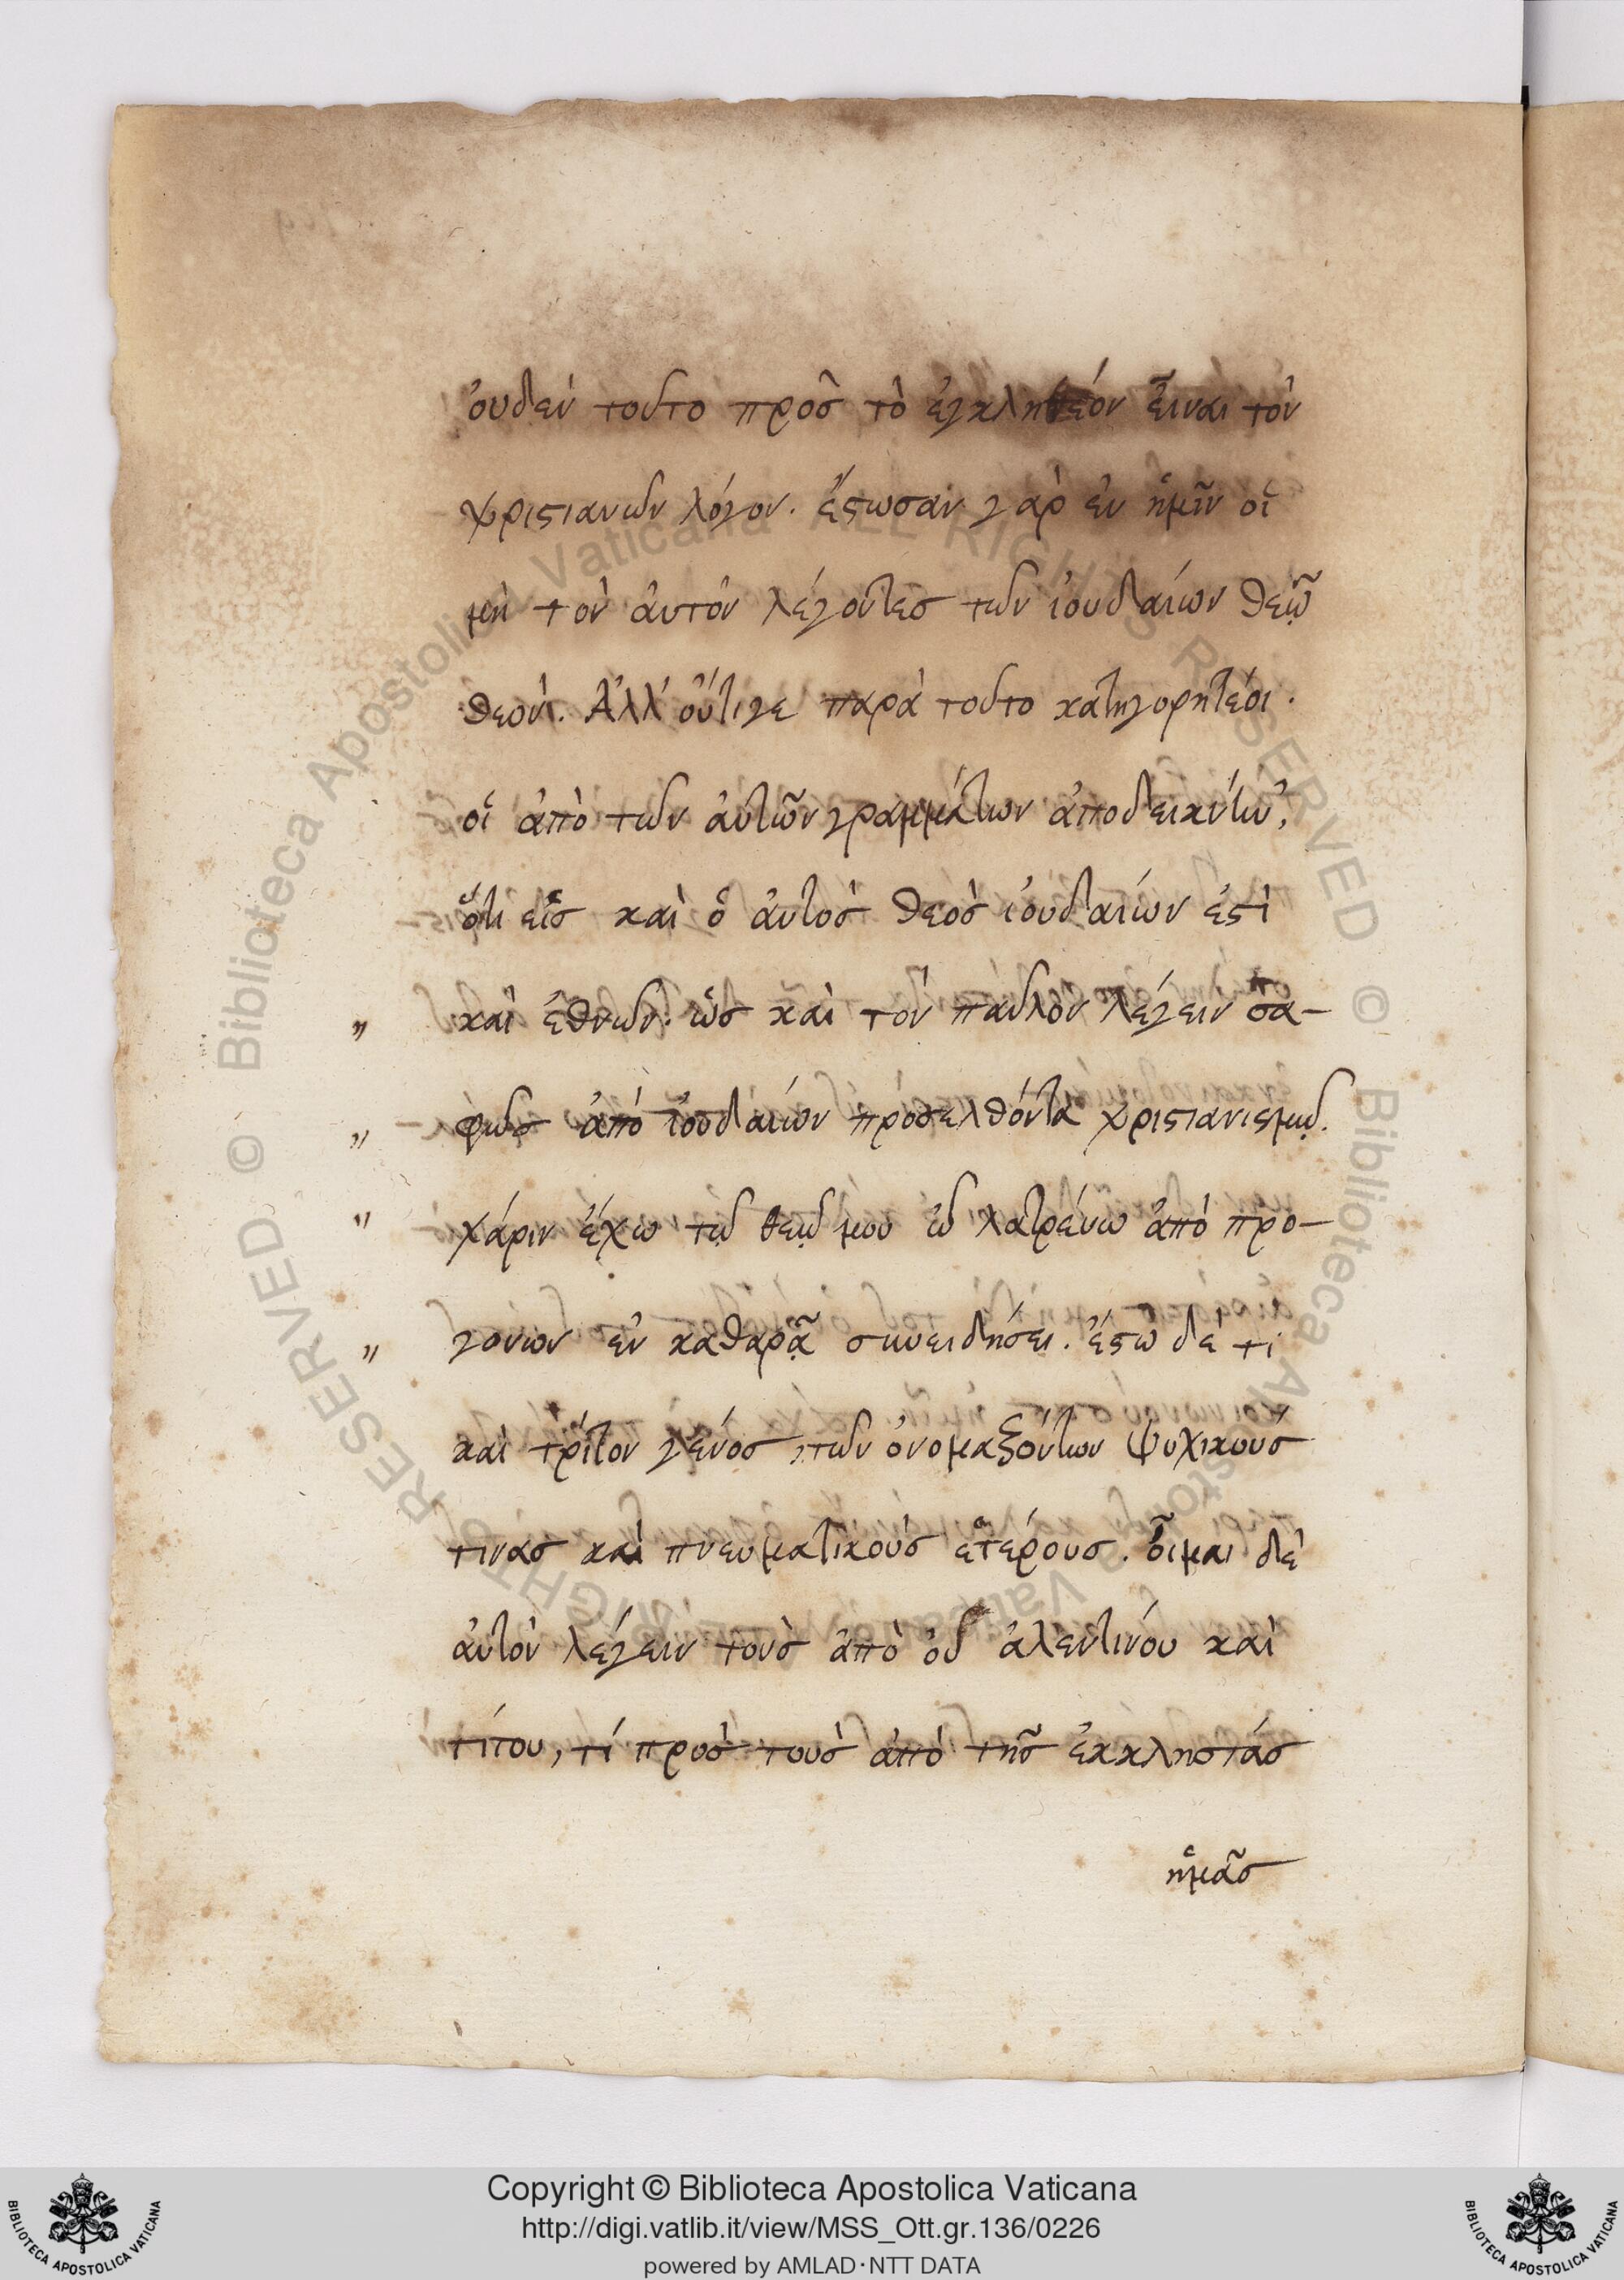 ὀυδὲν τοῦτο πρὸσ τὸ ἐγκλητέον εἶναι τὸν
χριστιανῶν λόγον. ἔστωσαν γὰρ ἐν ἡμῖν οἱ
μὴ τὸν ἀυτὸν λέγοντεσ τῶν ἰουδαίων θεῷ
θεόν. Ἀλλ' ὄυτιγε παρὰ τοῦτο κατηγορητέοι.
οἱ ἀπὸ τῶν ἀυτῶν γραμμάτων ἀποδεικνύτω,
ὅτι εἷσ καὶ ὁ ἀυτὸσ θεὸσ ἰουδαίων ἐστὶ
" καὶ ἐθνῶν. ὡσ καὶ τὸν παῦλον λέγειν σα-
" φῶσ ἀπὸ ἰουδαίων προσελθόντα χριστιανισμῷ.
" χάριν ἔχω τῷ θεῷ μου ᾧ λατρέυω ἀπὸ προ-
" γονων ἐν καθαρᾷ συνειδήσει. ἔστω δέ τι
καὶ τρίτον γένοσ, τῶν ὀνομαξόντων ψυχικούσ
τινασ καὶ πνευματικοὺσ ἑτέρουσ. οἶμαι δὲ
ἀυτὸν λέγειν τοὺσ ἀπὸ ὀῦ ἀλεντίνου καὶ
τίτου, τί πρὸσ τοὺσ ἀπὸ τῆσ ἐκκληστάσ
ἡμᾶσ
Copyright © Biblioteca Apostolica Vaticana
http://digi.vatlib.it/view/MSS_Ott.gr.136/0226
powered by AMLAD·NTT DATA
BIBLIOTECA APOSTOLICA VATICANA
BIBLIOTECA APOSTOLICA VATICANA
© Biblioteca Apostolica Vaticana ALL RIGHTS RESERVED
© Biblioteca Apostolica Vaticana ALL RIGHTS RESERVED